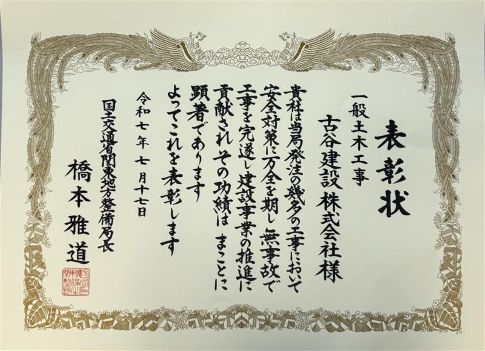 表彰状
一般土木工事
古谷建設株式会社様
貴社は当局発注の幾多の工事において
安全対策に万全を期し無事故で
工事を完遂し建設事業の推進に
貢献されその功績はまことに
顕著であります
よってこれを表彰します
令和七年七月十七日
国土交通省関東地方整備局長
橋本雅道